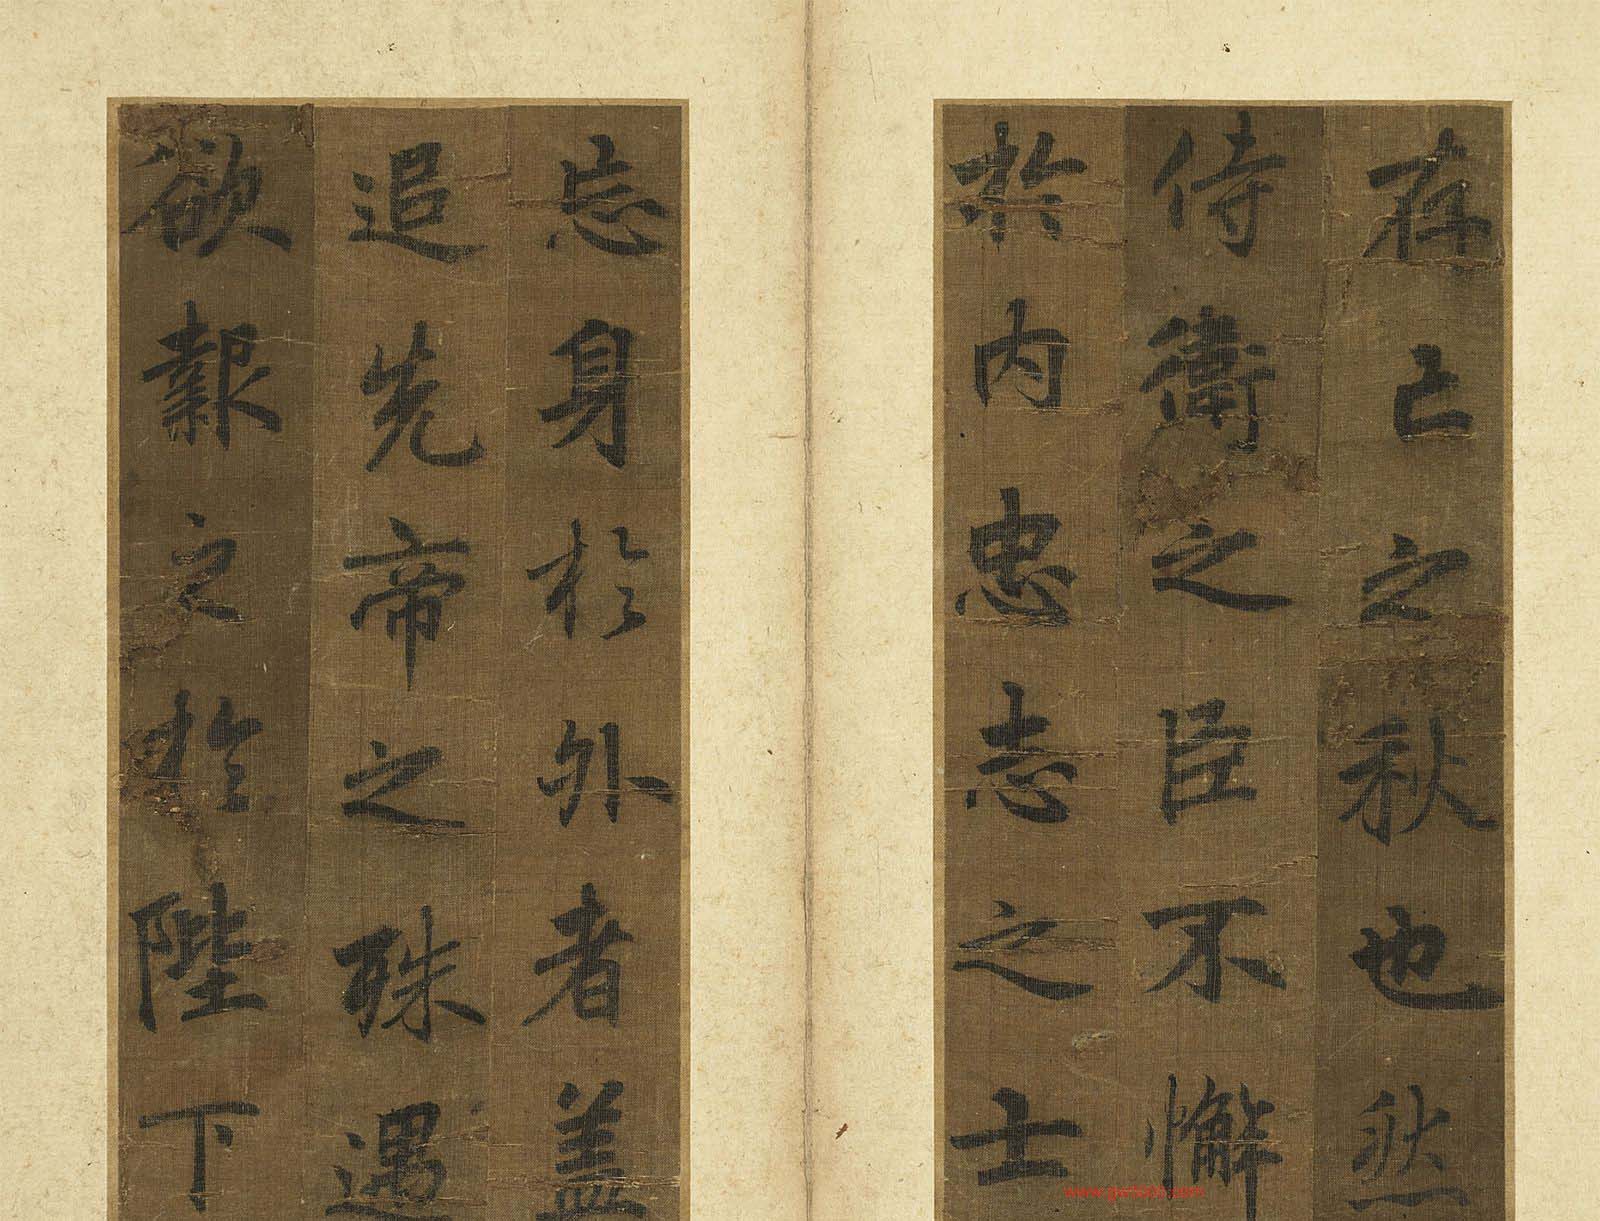 存亡之秋也然
侍衛之臣不懈
於內忠志之士
忘身於外者蓋
追先帝之殊遇
欲報之於陛下
www.gxc5000.com